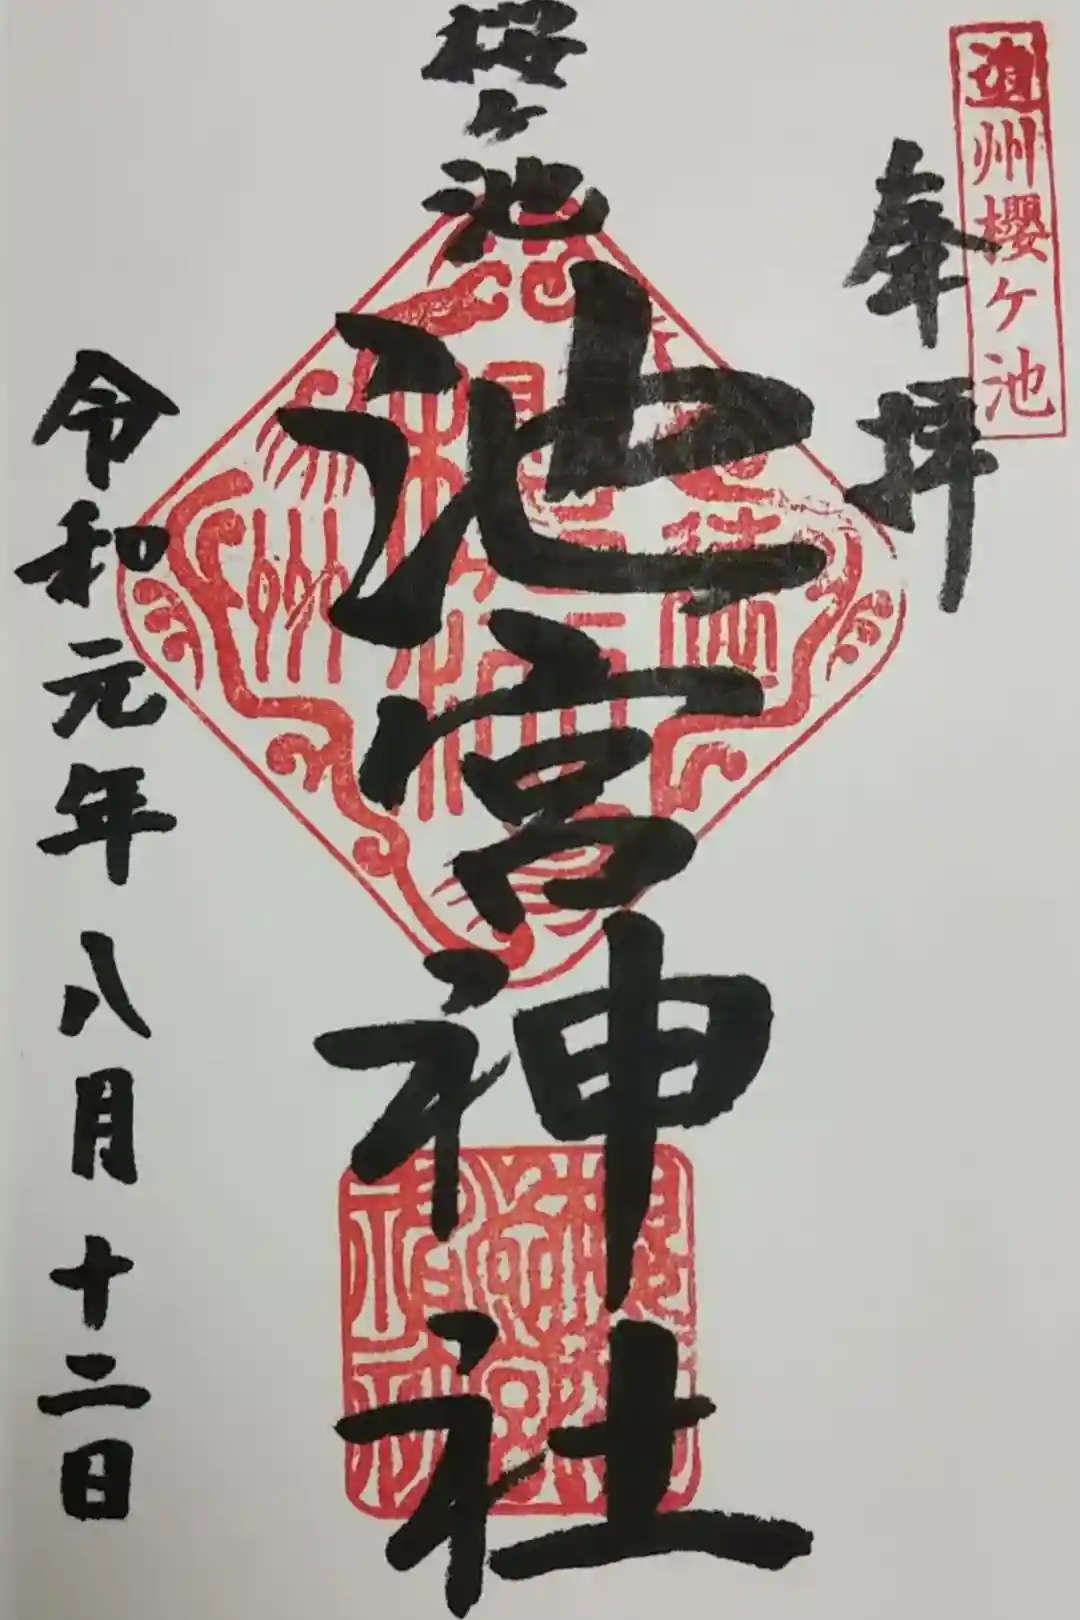 遠州櫻ケ池
奉拝
櫻ヶ池
池宮神社
令和元年八月十二日